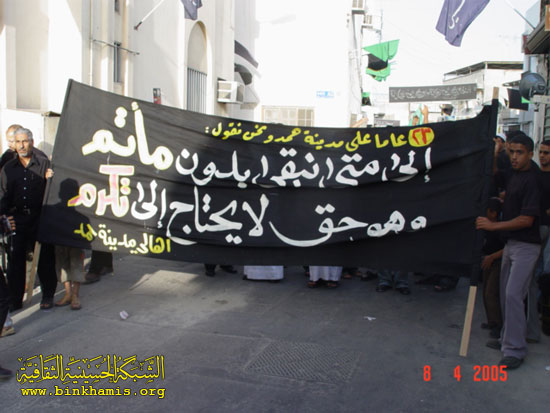 ٢٣ عاما على مدينة حمد ونحن نقول :
إلى متى نبقى بدون مأتم
وهو حق لا يحتاج إلى تكرم
اهالي مدينة حمد
الشبكة الحسينية الثقافية
www.binkhamis.org
8 4 2005